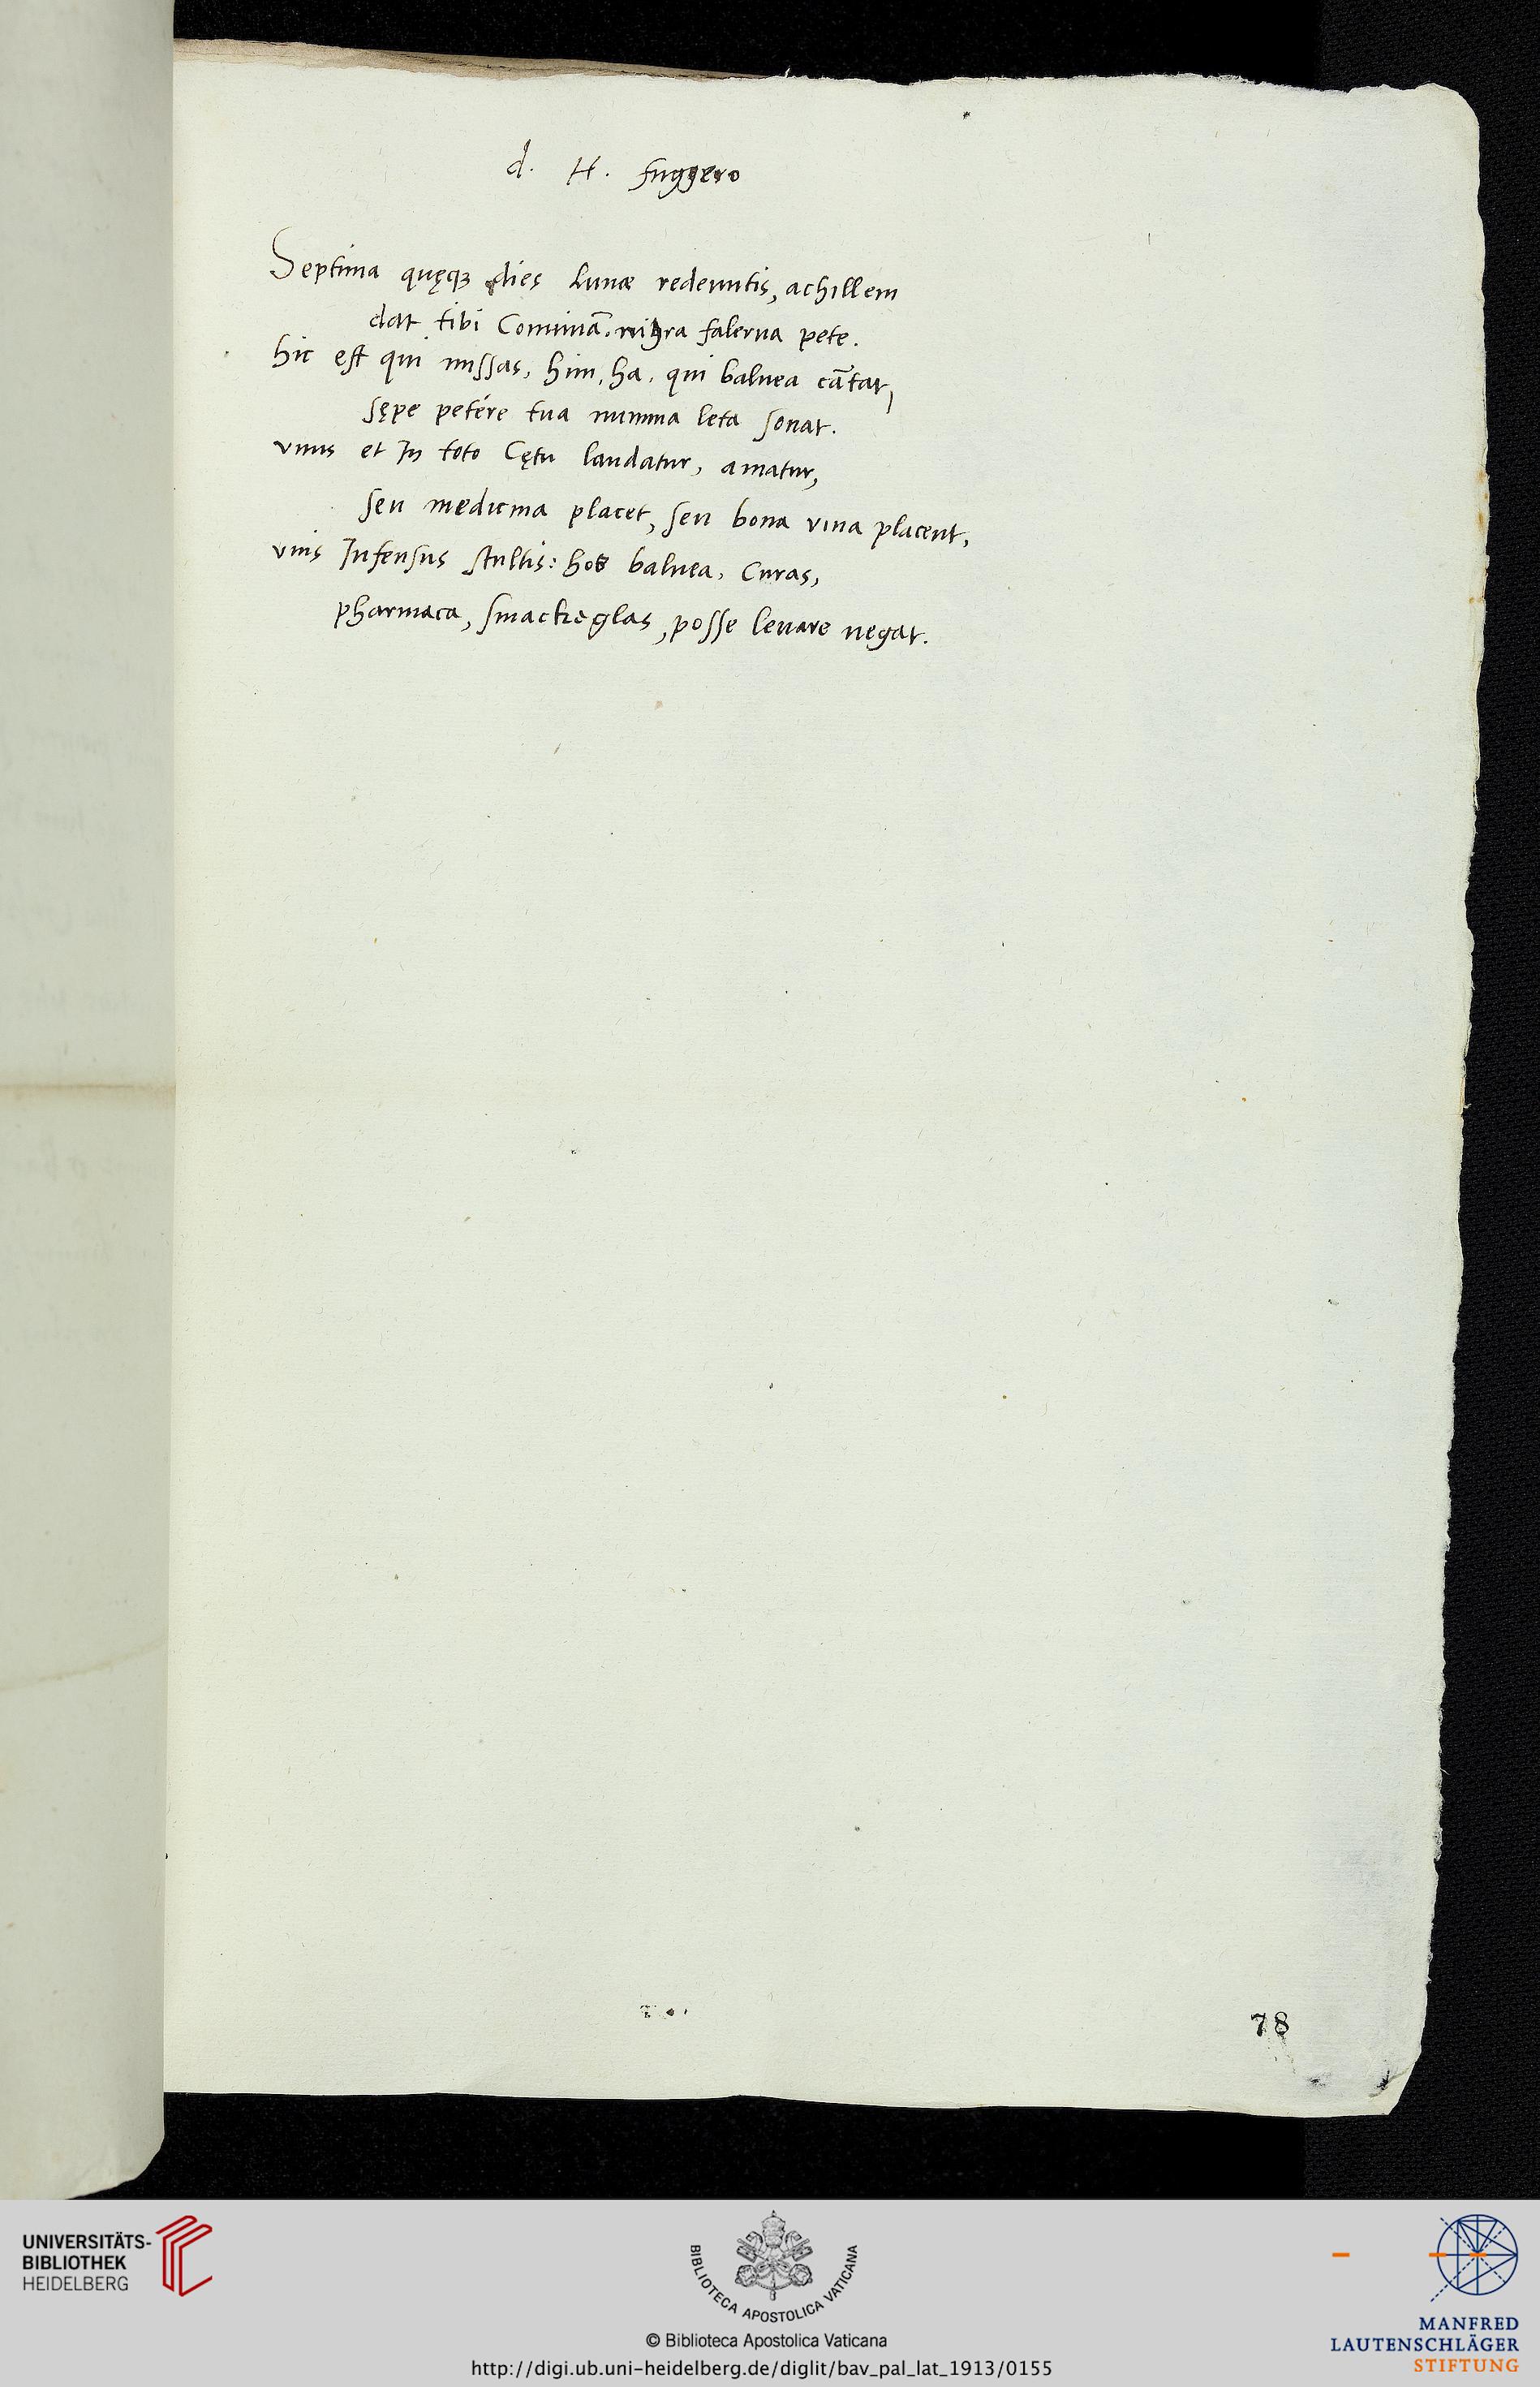 d. H. fuggero
Septima quęqꝫ dies Lunæ redeuntis, achillem
dat tibi Cominā. nigra falerna pete.
hic est qui missas, him, ha, qui balnea cātat,
sępe petére tua numina leta sonat.
vnus et In toto Cętu laudatur, amatur,
seu medicina placet, seu bona vina placent,
vnis Infensus stultis: hos balnea, Curas,
pharmaca, smackeglas, posse leuare negat.
78
UNIVERSITÄTS-
BIBLIOTHEK
HEIDELBERG
BIBLIOTECA APOSTOLICA VATICANA
© Biblioteca Apostolica Vaticana
http://digi.ub.uni-heidelberg.de/diglit/bav_pal_lat_1913/0155
MANFRED
LAUTENSCHLÄGER
STIFTUNG